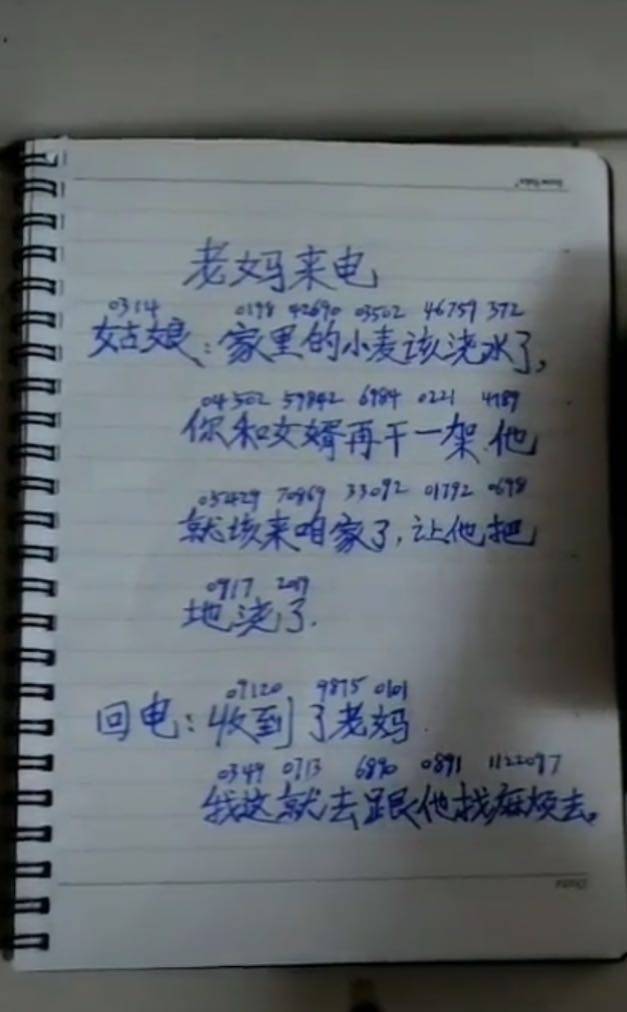 老妈来电
0314 0198 42690 03502 46759 372
姑娘：家里的小麦该浇水了，
04502 59842 6984 0221 4189
你和女婿再干一架.他
05429 70869 33092 01792 0698
就该来咱家了，让他把
0917 2019
地浇了.
09120 9875 0101
回电：收到了老妈.
0349 0713 6890 0891 1122097
我这就去跟他找麻烦去。